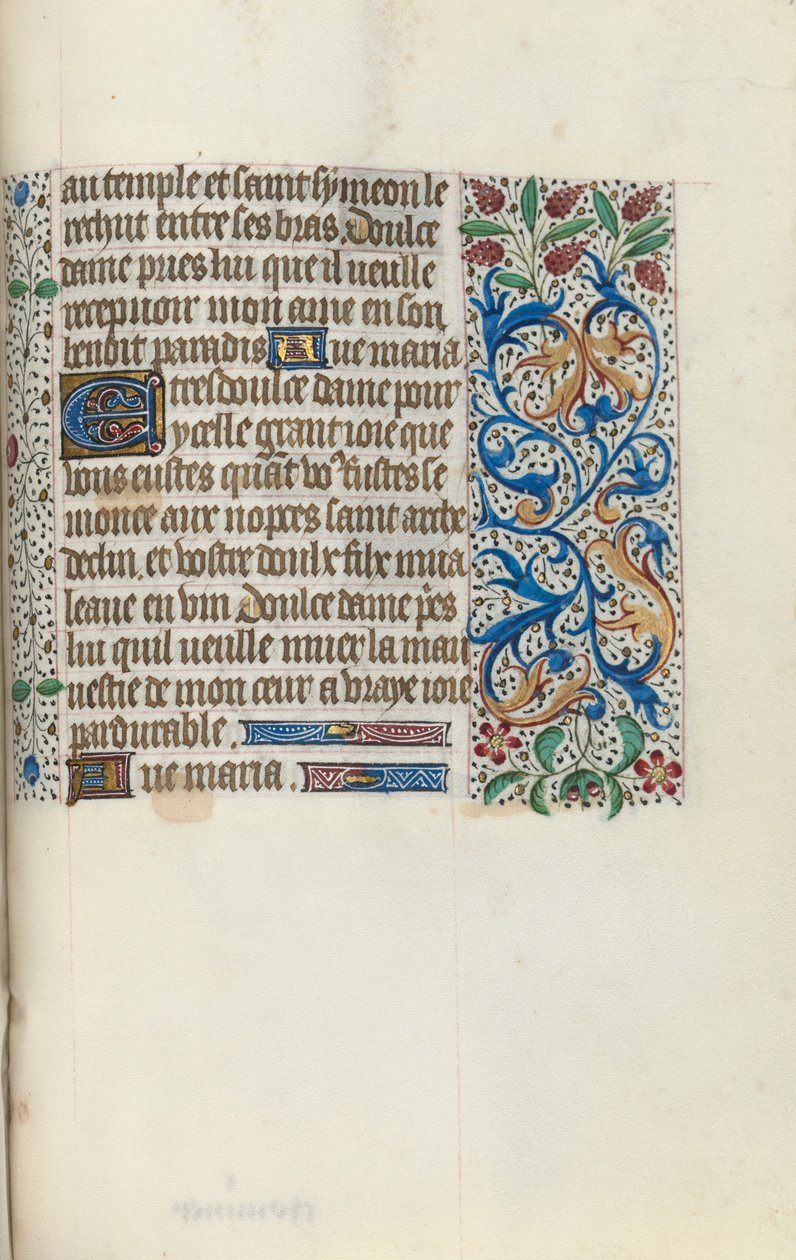 au temple et saint symeon le
rechut entre ses bras. Doulce
dame pries lui que il ueulle
recepuoir mon ame en son
benoit paradis Aue maria
E tresdoulce dame pour
ycelle grant ioie que
vous eustes quãt voꝰ fustes se
monce aux nopces saint arche
declin. et vostre doulx filx mua
leaue en vin Doulce dame p̃es
lui quil ueulle muer la mau
uestie de mon ceur a vraye ioie
pardurable.
Aue maria.